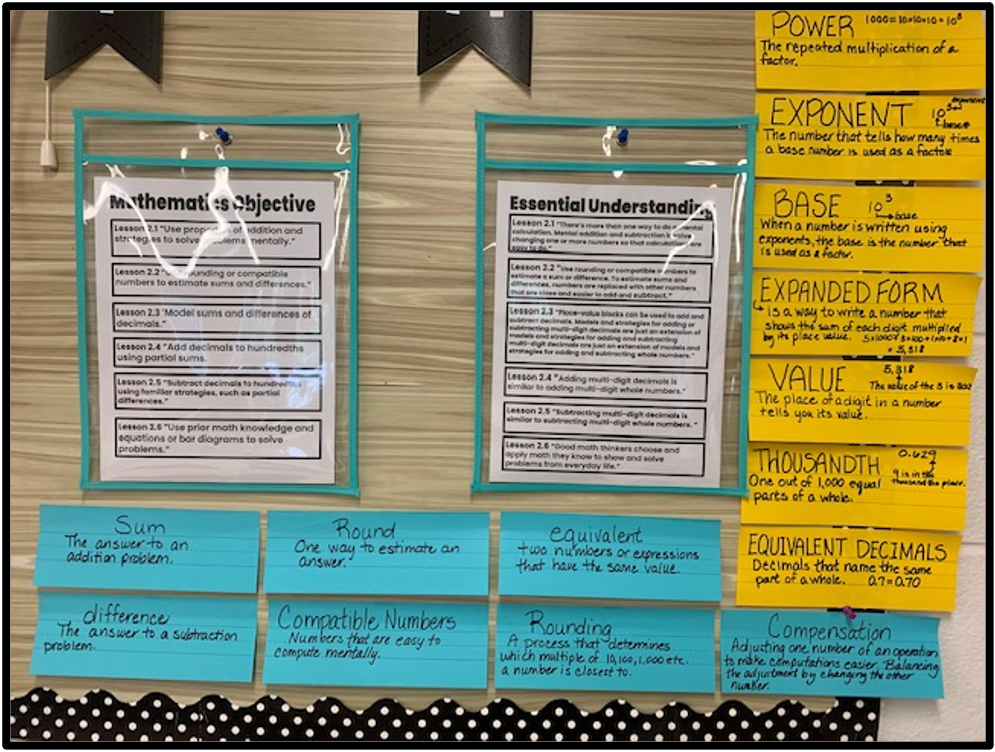 Mathematics Objective
Lesson 2.1 "Use properties of addition and
strategies to solve problems mentally."
Lesson 2.2 "Use rounding or compatible
numbers to estimate sums and differences."
Lesson 2.3 'Model sums and differences of
decimals."
Lesson 2.4 "Add decimals to hundredths
using partial sums.
Lesson 2.5 "Subtract decimals to hundredths
using familiar strategies, such as partial
differences."
Lesson 2.6 "Use prior math knowledge and
equations or bar diagrams to solve
problems."
Essential Understanding
Lesson 2.1 "There's more than one way to do a mental
calculation. Mental addition and subtraction
changing one or more numbers so that calculations are
easy to do."
Lesson 2.2 "Use rounding or compatible numbers to
estimate a sum or difference. To estimate sums and
differences, numbers are replaced with other numbers
that are close and easier to add and subtract."
Lesson 2.3 "Place-value blocks can be used to add and
subtract decimals. Models and strategies for adding or
subtracting multi-digit decimals are just an extension of
models and strategies for adding and subtracting
multi-digit decimals are just an extension of models and
strategies for adding and subtracting whole numbers."
Lesson 2.4 "Adding multi-digit decimals is
similar to adding multi-digit whole numbers."
Lesson 2.5 "Subtracting multi-digit decimals is
similar to subtracting multi-digit whole numbers. "
Lesson 2.6 "Good math thinkers choose and
apply math they know to show and solve
problems from everyday life."
POWER 1000=10×10×10=10³
The repeated multiplication of a
factor.
EXPONENT 10³ exponent
base
The number that tells how many times
a base number is used as a factor
BASE 10³
base
When a number is written using
exponents, the base is the number that
is used as a factor.
EXPANDED FORM
is a way to write a number that
shows the sum of each digit multiplied
by its place value. 5×1000+3×100+1×10+8×1
= 5,318
VALUE 5,318
The value of the 3 is 300
The place of a digit in a number
tells you its value.
THOUSANDTH 0.629
One out of 1,000 equal
parts of a whole.
9 is in the
thousandths place.
EQUIVALENT DECIMALS
Decimals that name the same
part of a whole. 0.7=0.70
Sum
The answer to an
addition problem.
Round
One way to estimate an
answer.
equivalent
two numbers or expressions
that have the same value.
difference
The answer to a subtraction
problem.
Compatible Numbers
Numbers that are easy to
compute mentally.
Rounding
A process that determines
which multiple of 10,100,1,000 etc.
a number is closest to.
Compensation
Adjusting one number of an operation
to make computations easier. Balancing
the adjustment by changing the other
number.